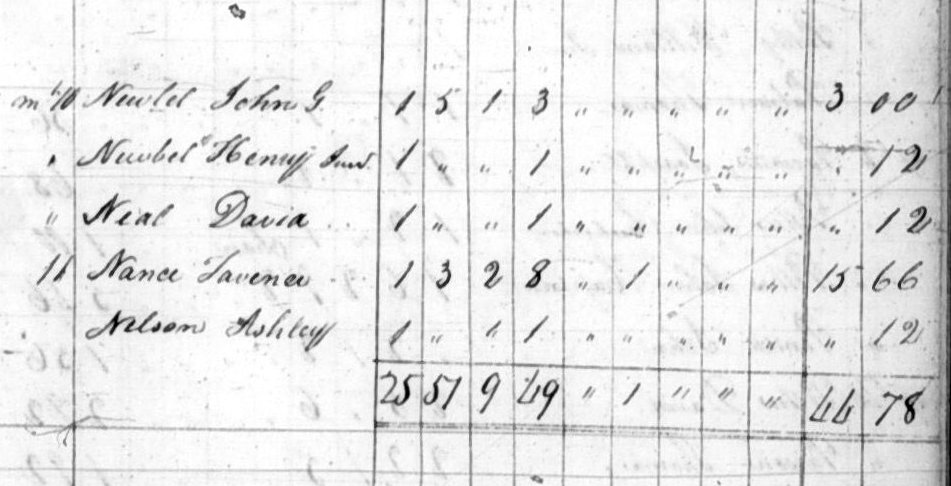 10 Newbel John G. 1 5 1 3 " " " " " 3 00
Newbel Henry 1 " " 1 " " " " " " 12
" Neal David 1 " " 1 " " " " " " 12
16 Nance Tavener 1 3 2 8 " 1 " " " 15 66
Nelson Ashley 1 " " 1 " " " " " " 12
25 51 9 49 " 1 " " " 44 78